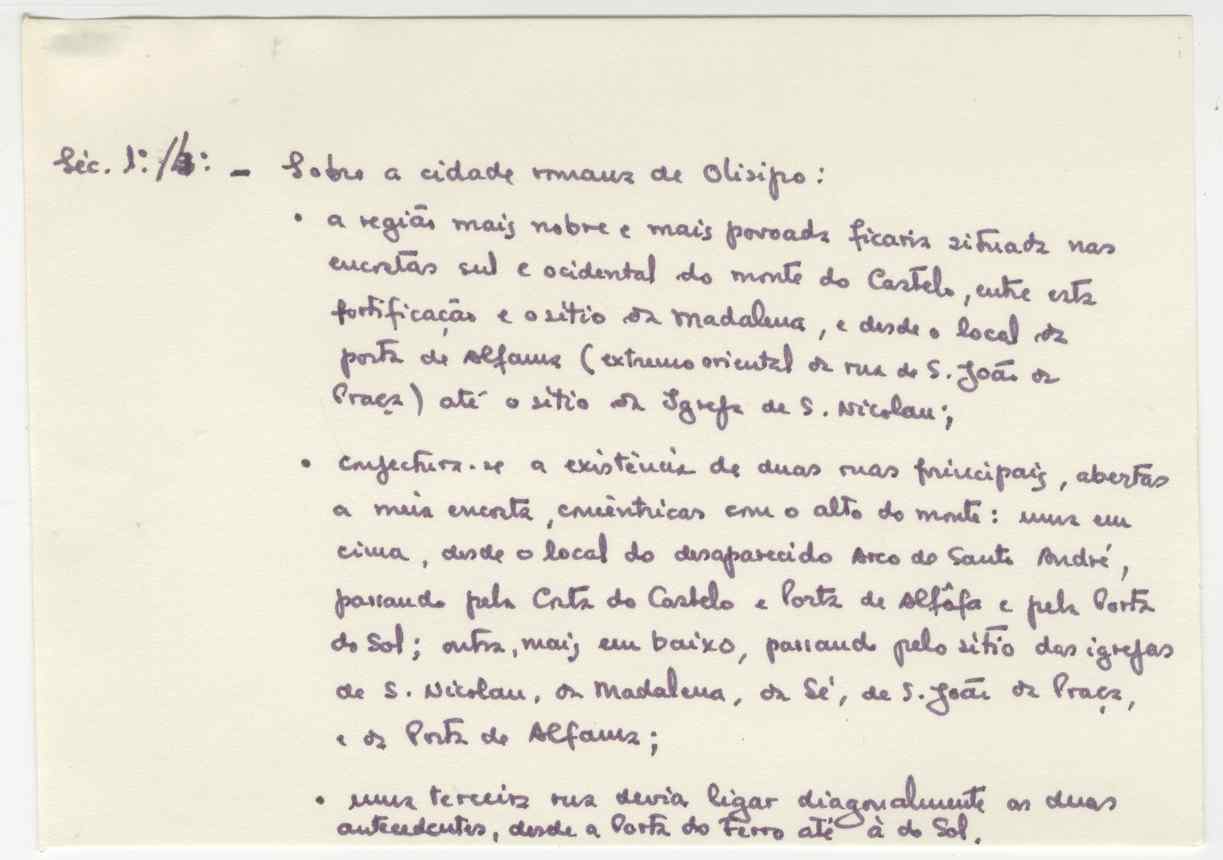 Séc. 1º/3º - Sobre a cidade romana de Olisipo:
• a região mais nobre e mais povoada ficaria situada nas
encostas sul e ocidental do monte do Castelo, entre esta
fortificação e o sítio da Madalena, e desde o local da
porta de Alfama (extremo oriental da rua de S. João da
Praça) até o sítio da Igreja de S. Nicolau;
• conjectura-se a existência de duas ruas principais, abertas
a meia encosta, concêntricas com o alto do monte: uma em
cima, desde o local do desaparecido Arco de Santo André,
passando pela Costa do Castelo e Porta de Alfôfa e pela Porta
do Sol; outra, mais em baixo, passando pelo sítio das igrejas
de S. Nicolau, da Madalena, da Sé, de S. João da Praça,
e da Porta de Alfama;
• uma terceira rua devia ligar diagonalmente as duas
antecedentes, desde a Porta do Ferro até à do Sol.